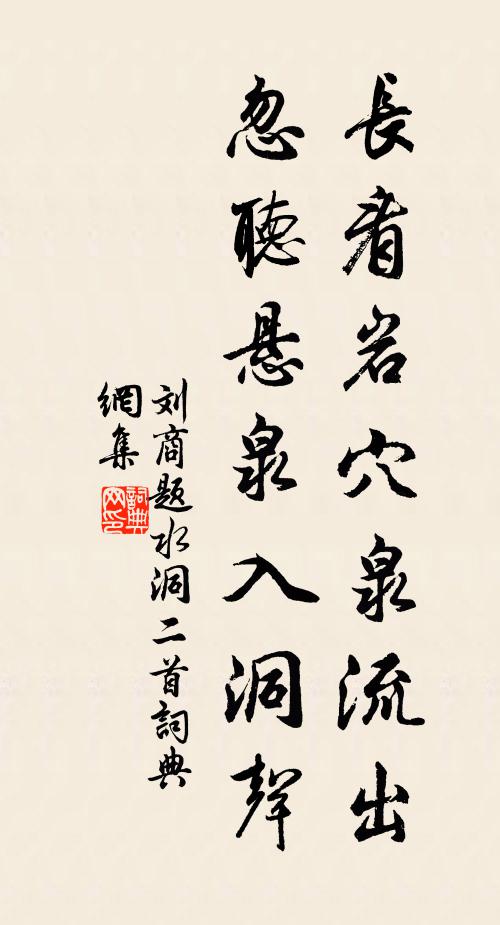 長看岩穴泉流出
忽聽悬泉入洞聲
刘商题水洞二首詞典
網集
詞典网印